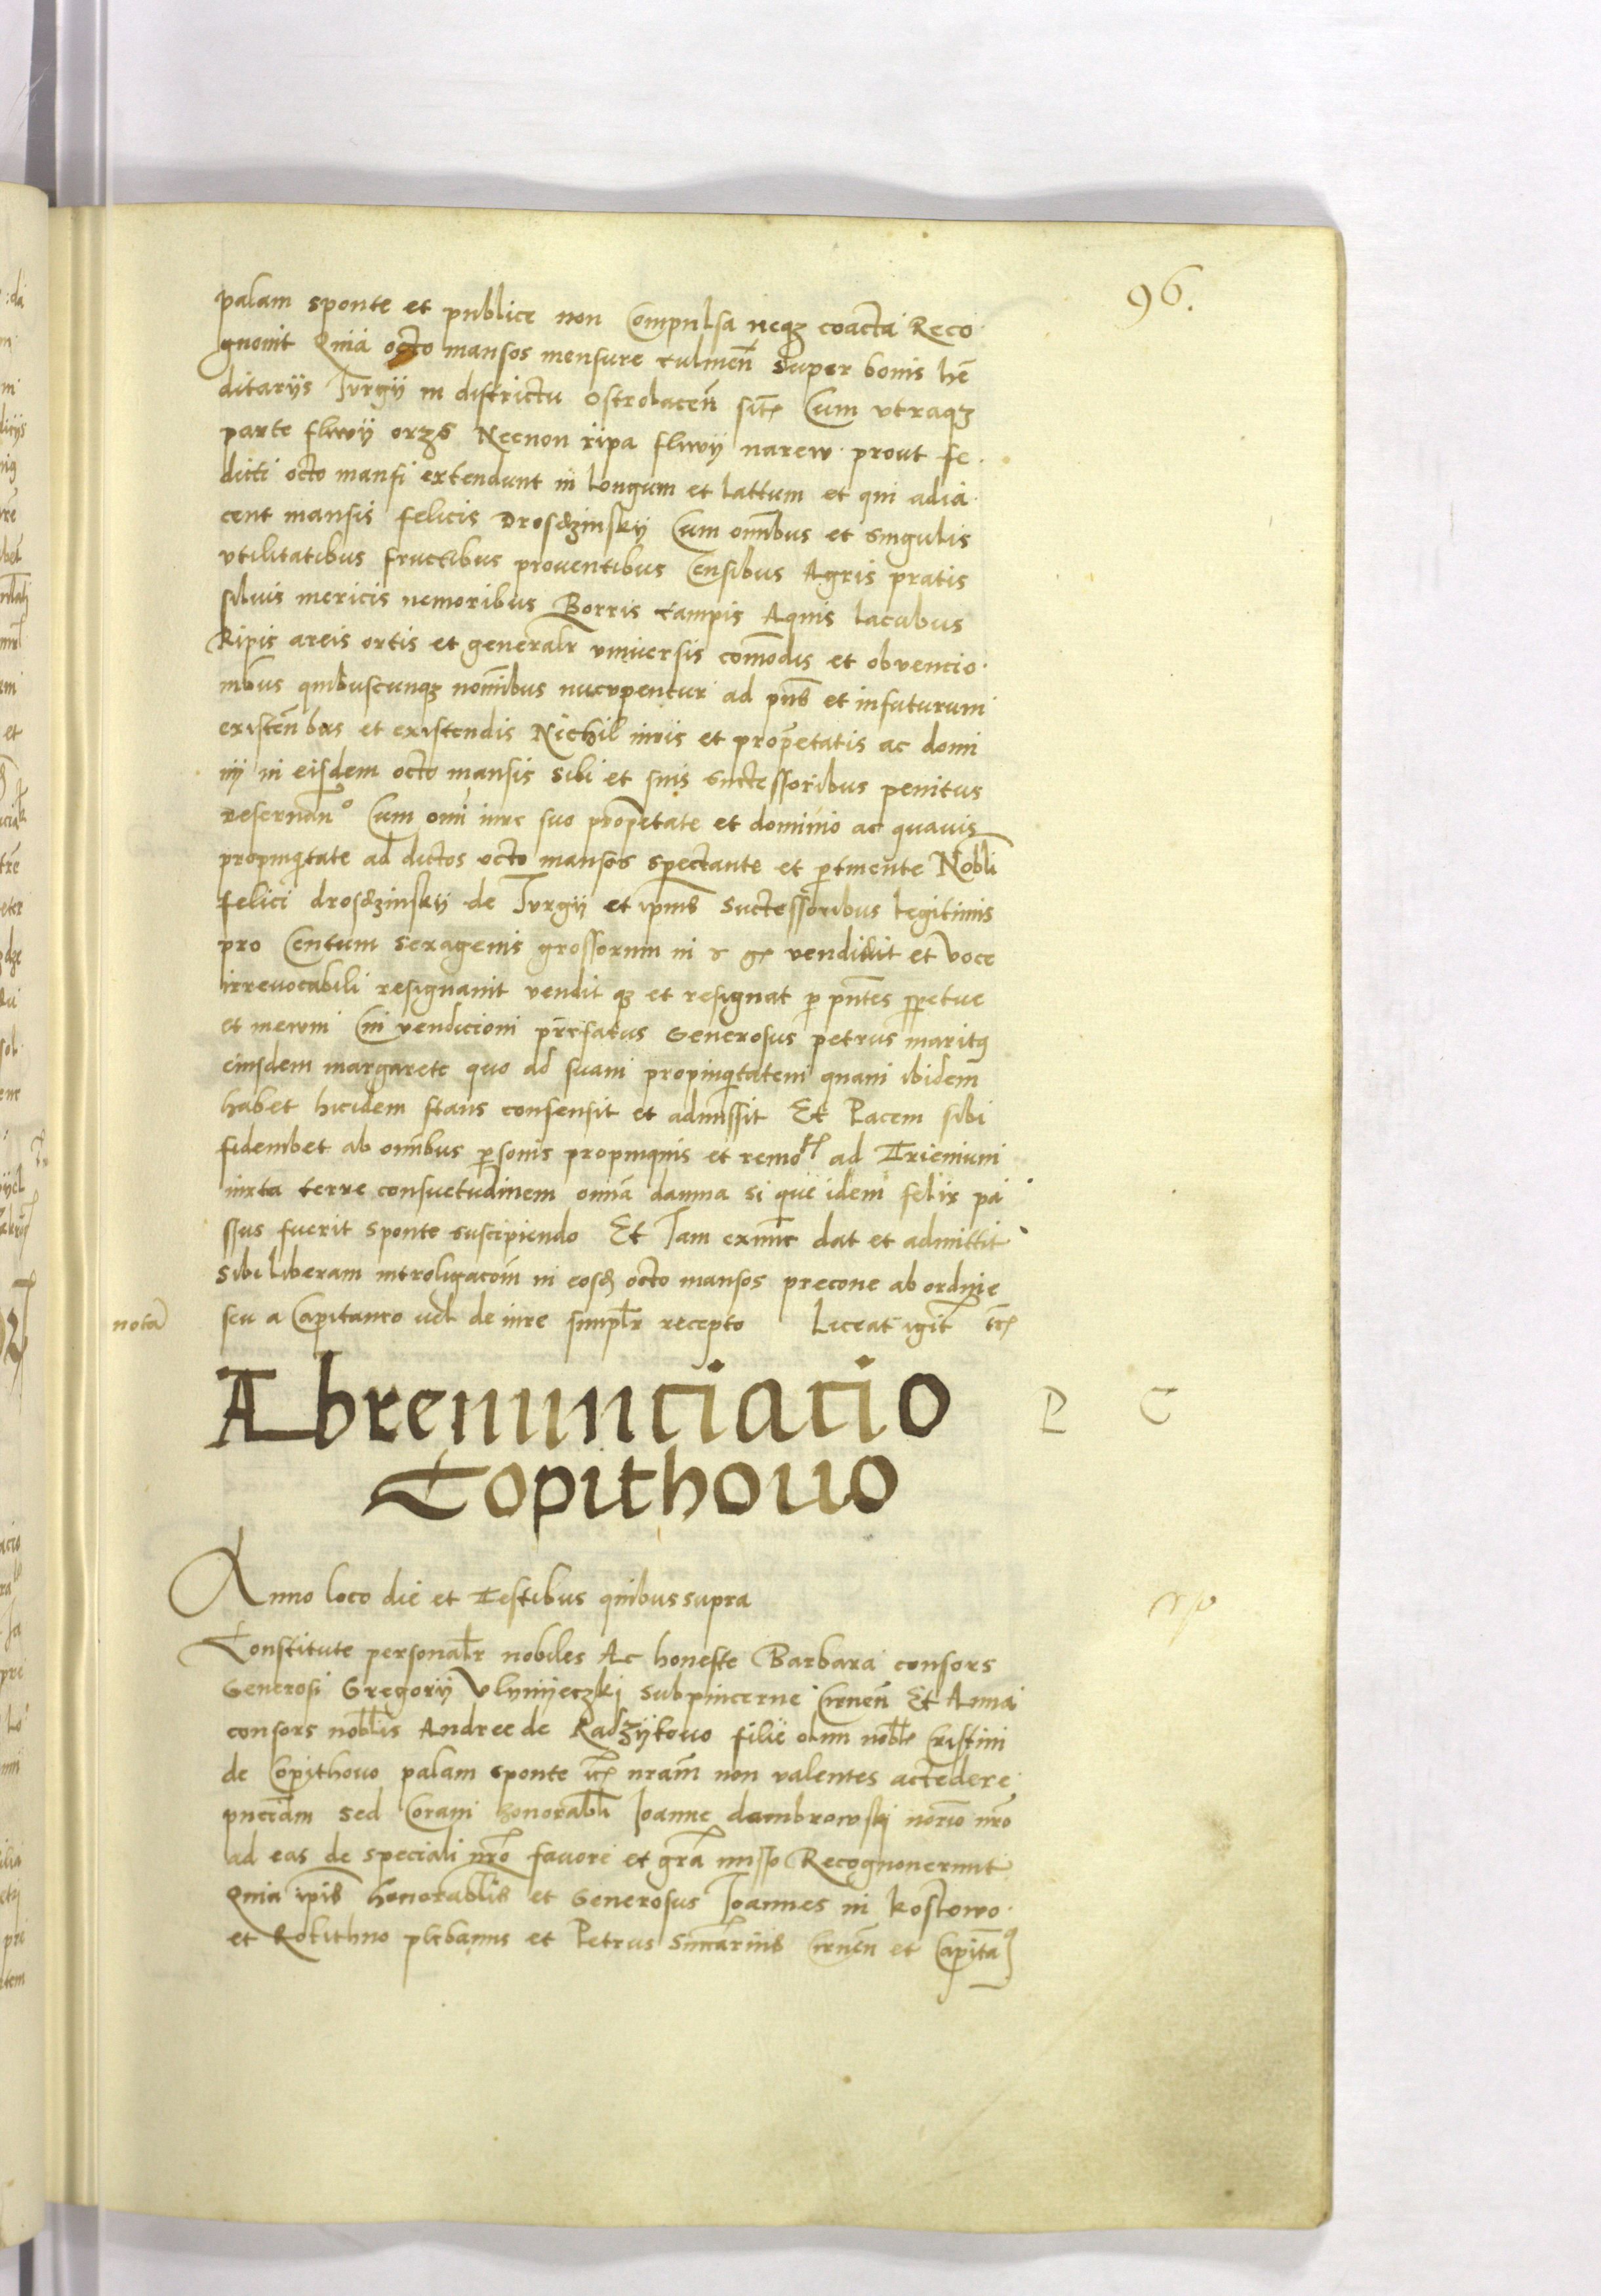 96.
palam sponte et publice non Compulsa neqз coacta Reco
gnouit Quia octo mansos mensure culmeñ Super bonis hē
ditariis Turgij in districtu Ostrolaceñ sit Cum vtraqз
parte fluvij orzs Necnon ripa fluvij narew prout se
dicti octo mansi extendunt in Longum et lattum et qui adia
cent mansis felicis Drosdzinskij Cum omībus et singulis
vtilitatibus fructibus prouentibus Censibus Agris pratis
siluis mericis nemoribus Borris campis Aquis lacubus
Ripis areis ortis et generalr vniuersis com̄odis et obuencio
nibus quibuscunqз nom̄ibus nucupentur ad pn̄s et infuturum
existen̄bus et existendis Nichil iuris et prop̄etatis ac domi
nij in eisdem octo mansis sibi et suis successoribus penitus
reseruan̄o Cum omī iure suo prop̄etate et dominio ac quauis
propinqitate ad dictos octo mansos spectante et ptinente Nobli
felici drosdzinskij de Turgij et ipius Successoribus legitimis
pro Centum sexagenis grossorum in vendidit et voce
irreuocabili resignauit vendit qз et resignat p pn̄tes ppetue
et in ewm Cui vendicioni prefatus Generosus petrus maritus
eiusdem margarete quo ad suam propinqitatem quam ibidem
habet hicidem stans consensit et admissit Et Pacem sibi
fidembet ab omībus psonis propinquis et remo ad Trienium
iuxta terre consuetudinem omīa damna si que idem felix pa
ssus fuerit sponte suscipiendo Et Iam exnūc dat et admittit
sibi liberam introligacōm in eosd octo mansos precone ab ordine
nota seu a Capitaneo uel de iure simplr recepto Liceat igit etc
Abrenunciacio P C
Copithouo
Anno loco die et Testibus quibus supra
Constitute personalr nobiles Ac honeste Barbara consors
Generosi Gregorij Vlynijeczki Subpincerne Cirneñ Et Anna
consors noblis Andree de Radzijkouo filie olim noblis Cristini
de Copithouo palam sponte etc nram̄ non valentes accedere
pnciam Sed Coram honorabli Ioanne dambrowskj notario nr̄o
ad eas de speciali nr̄o fauore et gra misso Recognouerunt
Quia ipis honorablis et Generosus Ioannes in kostowo
et Rokithno plebanus et Petrus Cirneñ et Capita